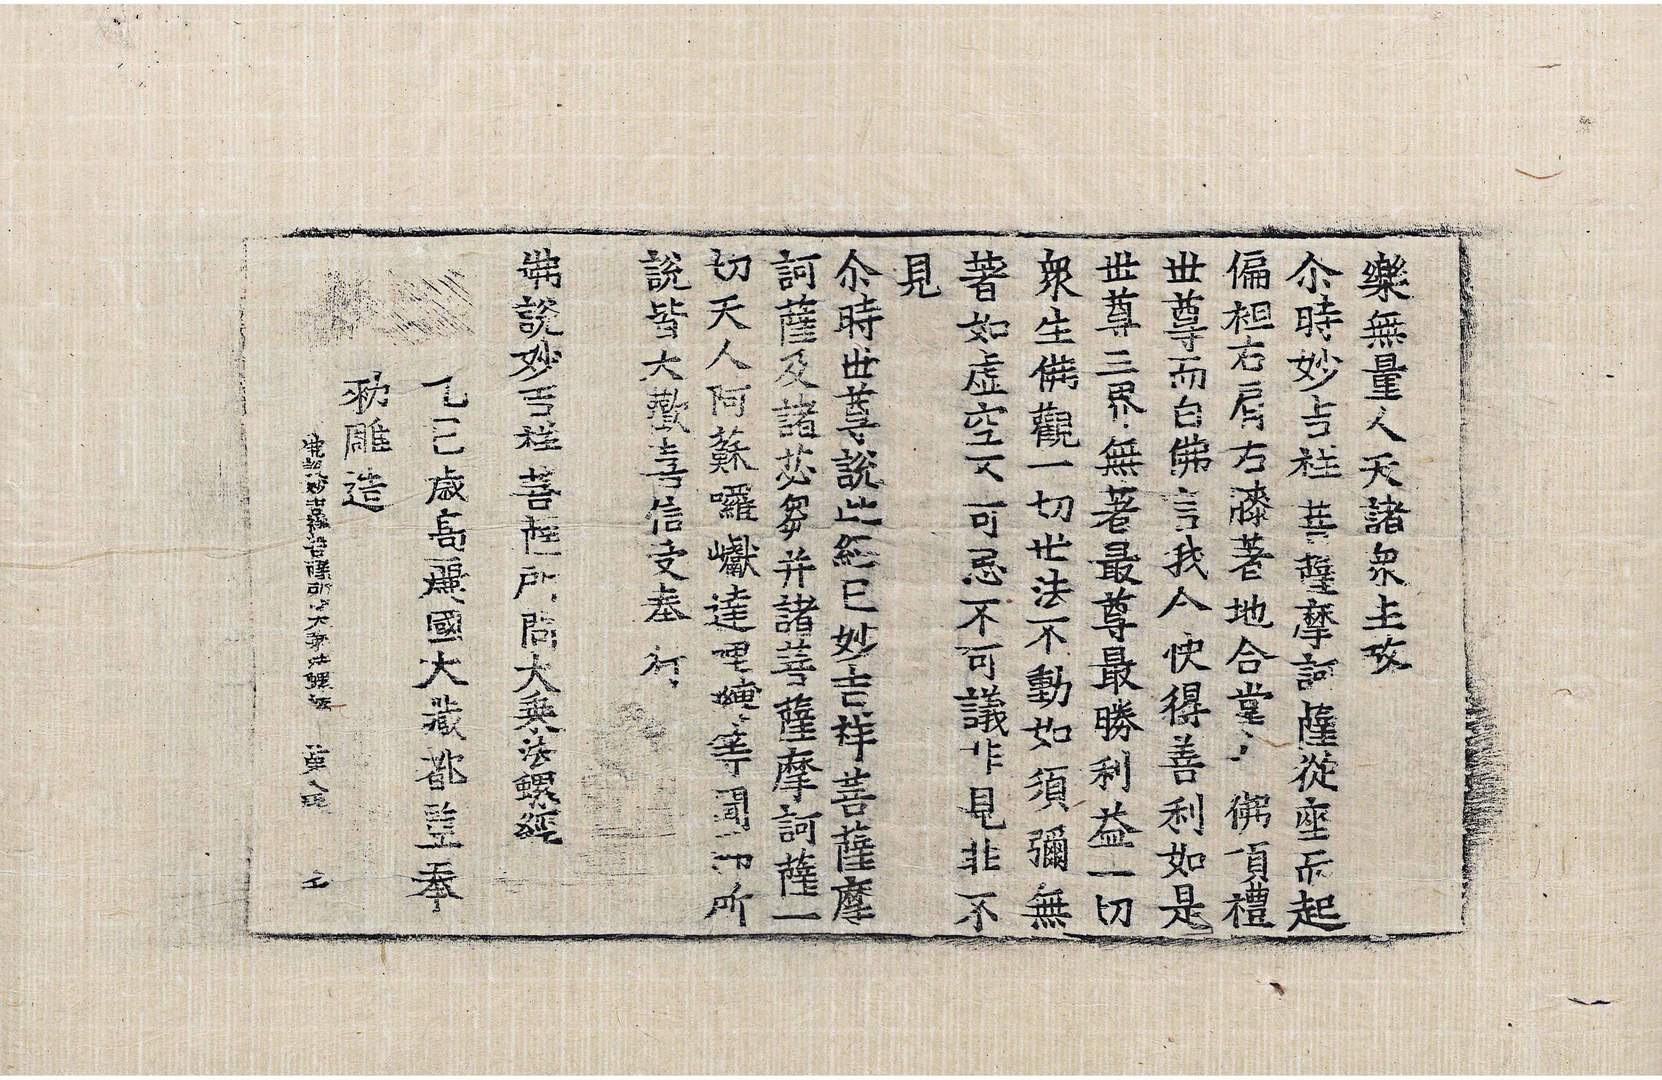 樂無量人天諸衆上攷
尒時妙吉祥菩薩摩訶薩從座而起
偏袒右肩右膝著地合掌 佛頂禮
世尊而白佛言我今快得善利如是
世尊三界無著最尊最勝利益一切
衆生佛觀一切世法不動如須彌無
著如虛空不可思不可議非見非不
見
尒時世尊說此經已妙吉祥菩薩摩
訶薩及諸苾芻并諸菩薩摩訶薩一
切天人阿蘇囉巘達哩嚩等聞佛所
說皆大歡喜信受奉行
佛說妙吉祥菩薩所問大乘法螺經
乙巳歲高麗國大藏都監奉
勑雕造
佛說妙吉祥菩薩所問大乘法螺經